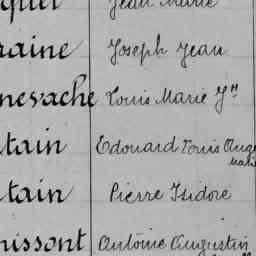 quet Jean Marie
raine Joseph Jean
nevache Louis Marie Jn
tain Edouard Louis Auge
Marie
tain Pierre Isidore
nissont Antoine Augustin